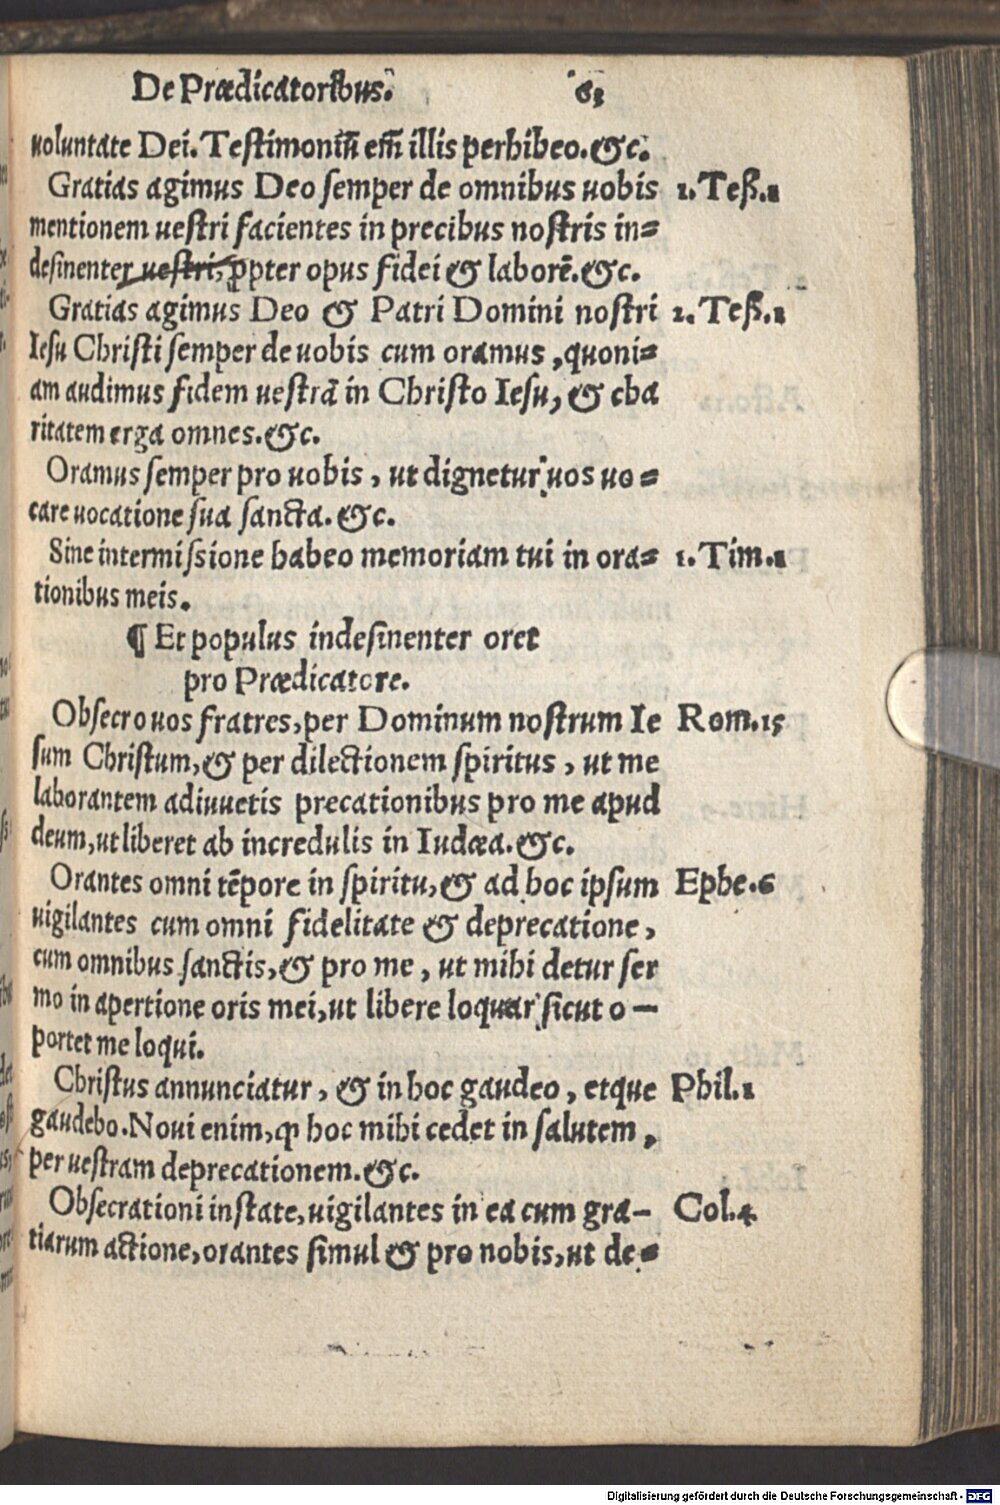 De Prædicatoribus. 63
uoluntate Dei. Testimoniũ em̃ illis perhibeo. &c.
Gratias agimus Deo semper de omnibus uobis 1. Tess.1
mentionem uestri facientes in precibus nostris in=
desinenter uestri, ꝓpter opus fidei & laborẽ. &c.
Gratias agimus Deo & Patri Domini nostri 2. Tess.1
Iesu Christi semper de uobis cum oramus, quoni=
am audimus fidem uestrã in Christo Iesu, & cha
ritatem erga omnes. &c.
Oramus semper pro uobis, ut dignetur uos uo=
care uocatione sua sancta. &c.
Sine intermissione habeo memoriam tui in ora= 1. Tim.1
tionibus meis.
¶ Et populus indesinenter oret
pro Prædicatore.
Obsecro uos fratres, per Dominum nostrum Ie Rom.15
sum Christum, & per dilectionem spiritus, ut me
laborantem adiuuetis precationibus pro me apud
deum, ut liberet ab incredulis in Iudæa. &c.
Orantes omni tẽpore in spiritu, & ad hoc ipsum Ephe.6
uigilantes cum omni fidelitate & deprecatione,
cum omnibus sanctis, & pro me, ut mihi detur ser
mo in apertione oris mei, ut libere loquar sicut o-
portet me loqui.
Christus annunciatur, & in hoc gaudeo, etque Phil.1
gaudebo. Noui enim, ꝙ hoc mihi cedet in salutem,
per uestram deprecationem. &c.
Obsecrationi instate, uigilantes in ea cum gra- Col.4
tiarum actione, orantes simul & pro nobis, ut de=
Digitalisierung gefördert durch die Deutsche Forschungsgemeinschaft - DFG